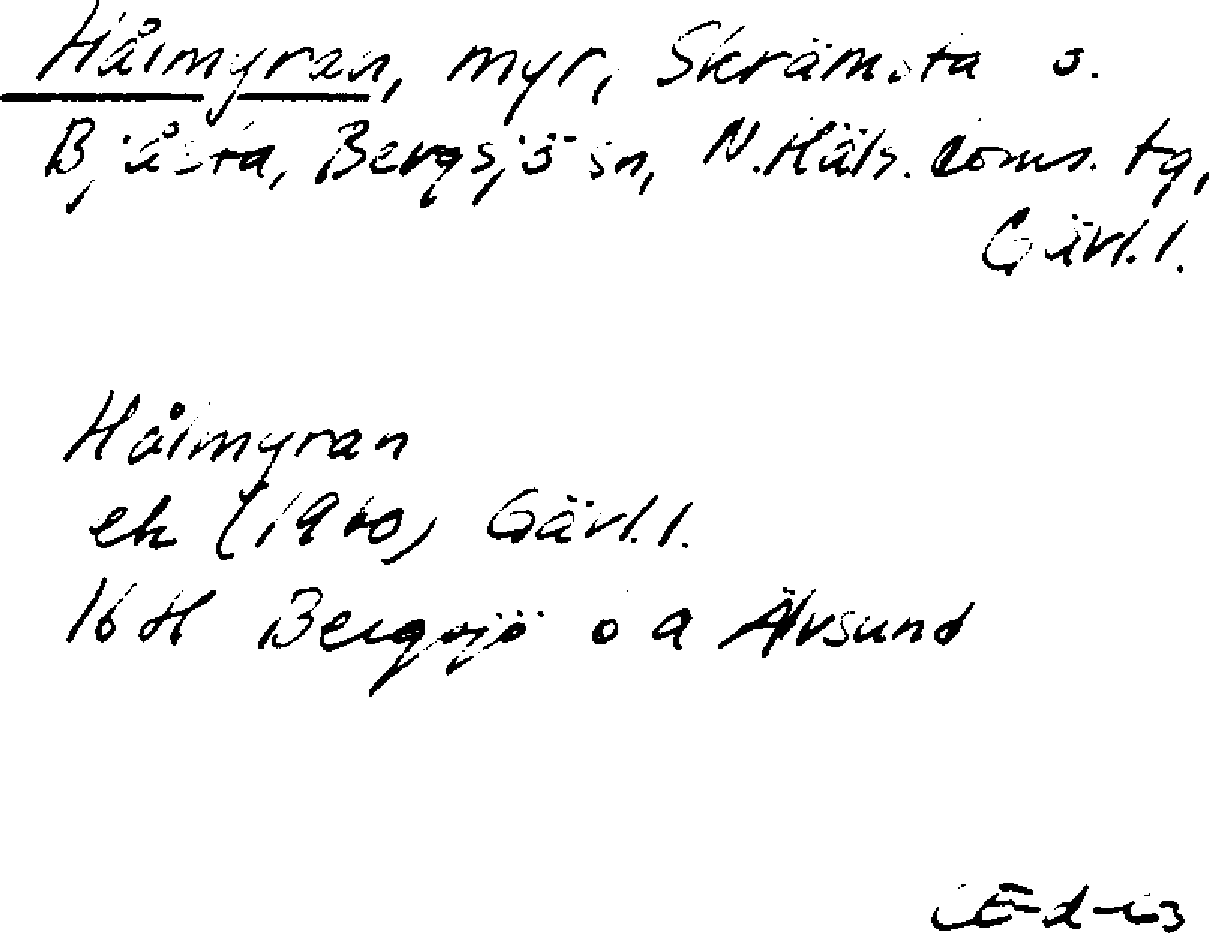 Hålmyran, myr, Skrämsta o.
Bjåsta, Bergsjö sn, N. Häls. doms. tg,
Gävl. l.
Hålmyran
ek (1960) Gävl. l.
16 H Bergsjö o a Älvsund